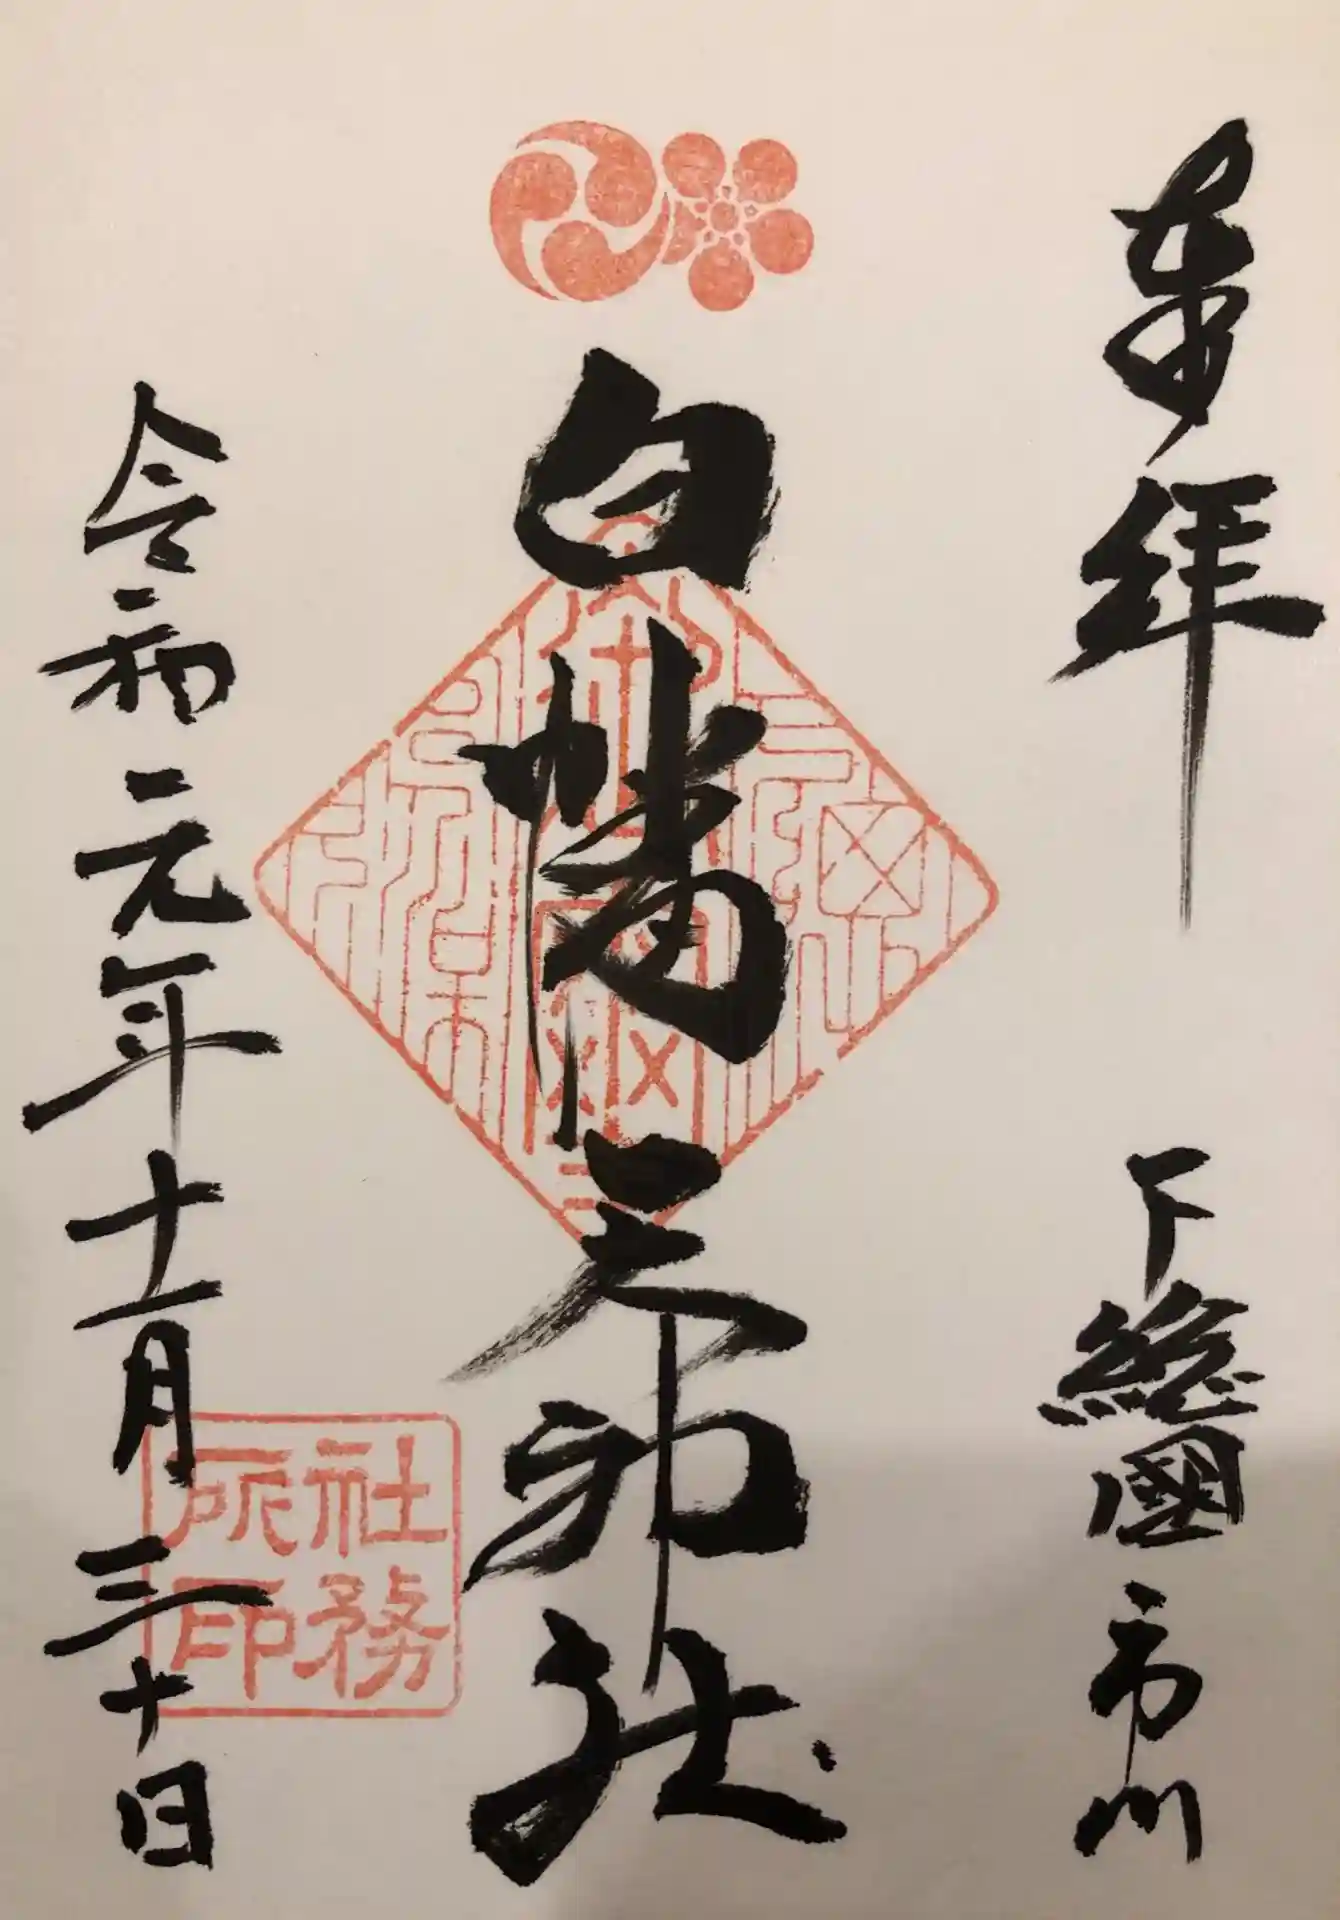 奉拝
下總國市川
白幡天神社
令和元年十一月三十日
社務
所印